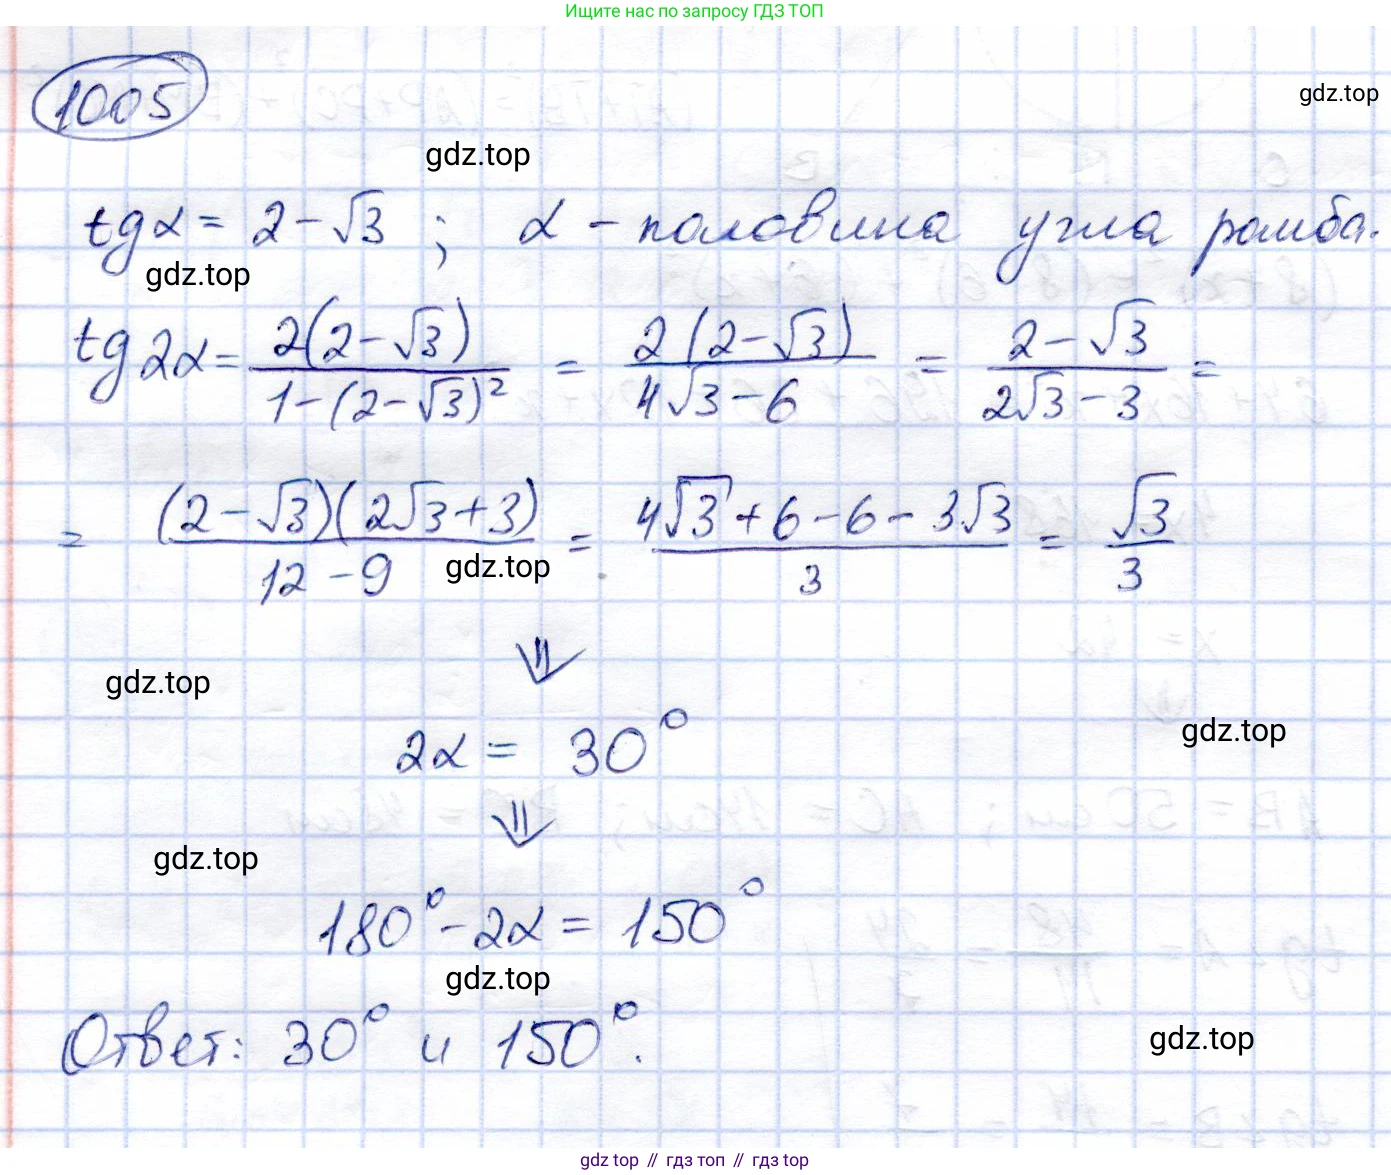 Ищите нас по запросу ГДЗ ТОП
1005
gdz.top
gdz.top
tgα = 2 - √3 ; α - половина угла ромба.
gdz.top
tg 2α = 2(2 - √3) / 1 - (2 - √3)² = 2(2 - √3) / 4√3 - 6 = 2 - √3 / 2√3 - 3 =
= (2 - √3)(2√3 + 3) / 12 - 9 = 4√3 + 6 - 6 - 3√3 / 3 = √3 / 3
gdz.top
⇓
gdz.top
2α = 30°
gdz.top
⇓
gdz.top
180° - 2α = 150°
gdz.top
Ответ: 30° и 150°.
gdz.top
gdz top // гдз топ // гдз top